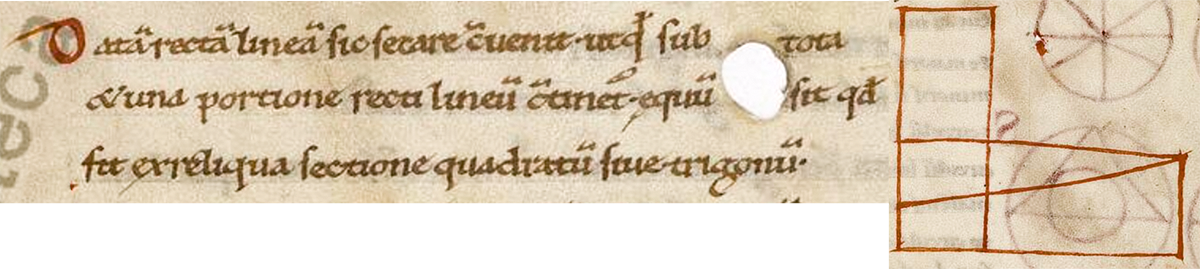 Datā rectā lineā sic secare c̄uenit · ut qđ sub tota
& una portione recti lineū c̄tinet᷑ · equū sit qđ
fit ex reliqua sectione quadratū siue trigonū ·